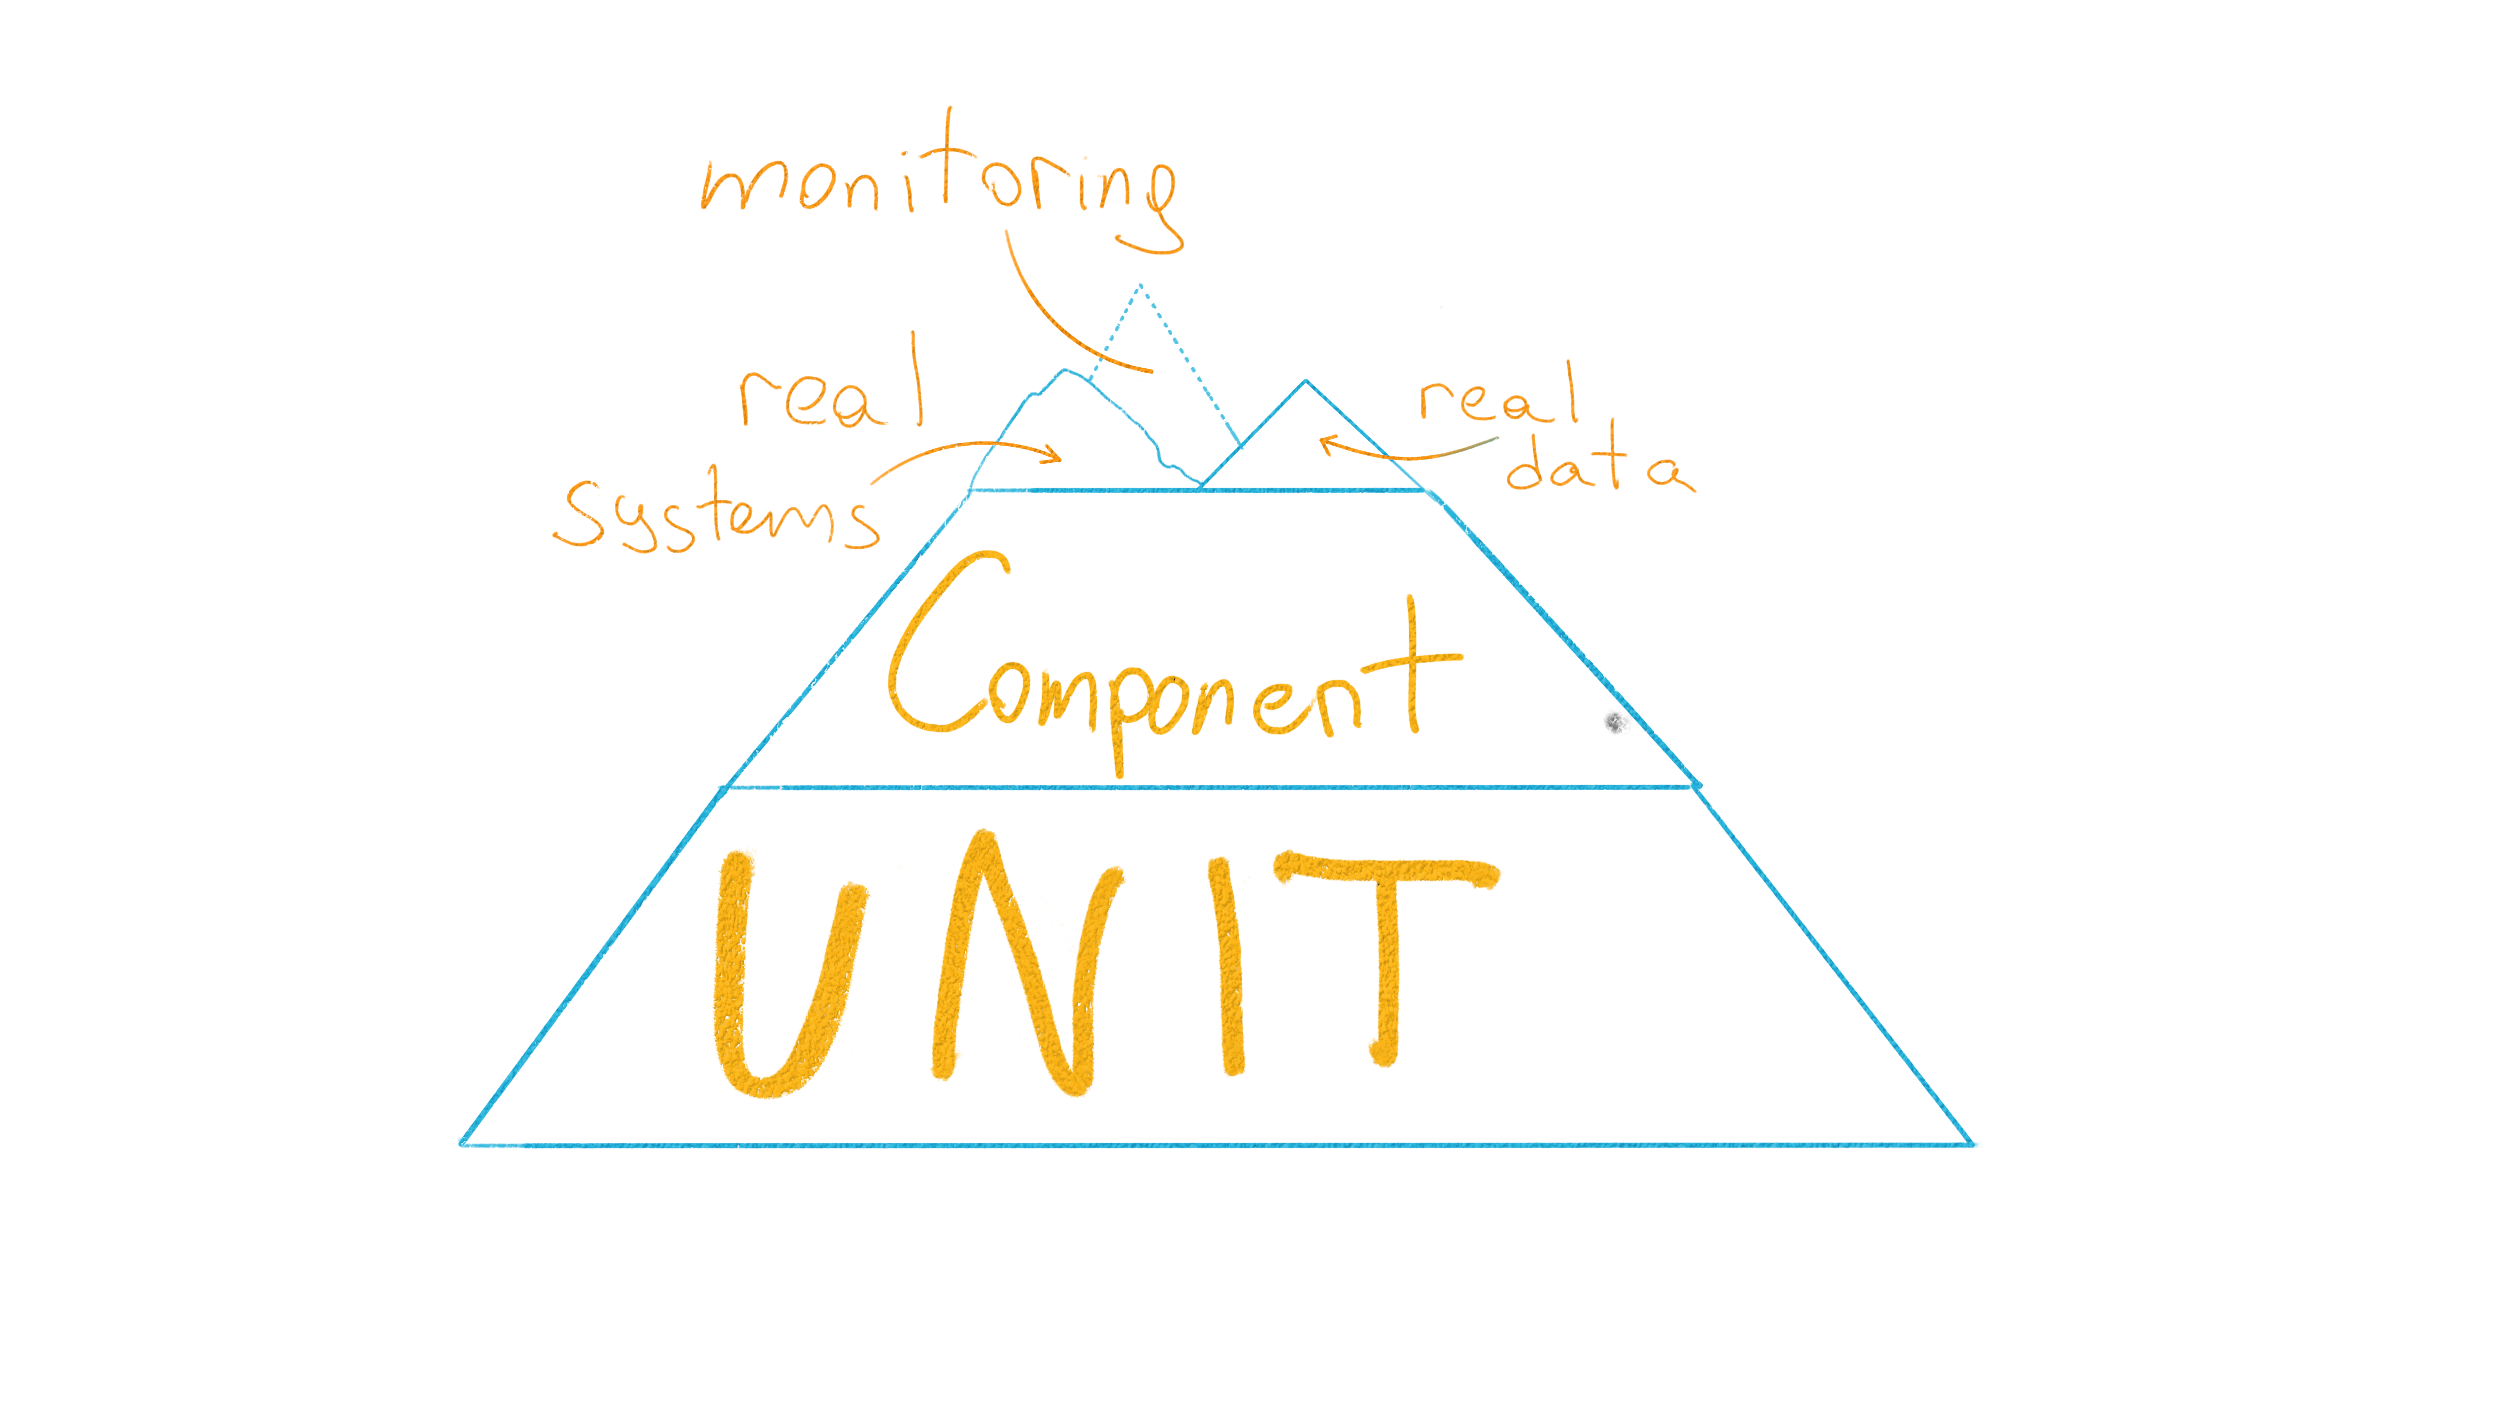 monitoring
real
systems
real
data
Component
UNIT